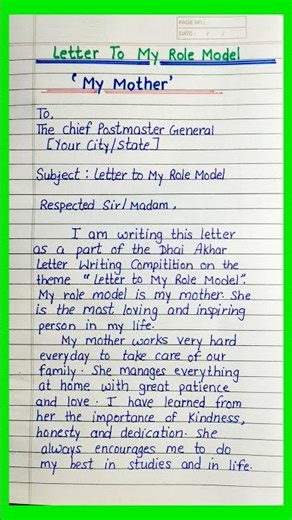 PAGE NO.:
DATE: / /
Letter To My Role Model
‘My Mother’
To,
The chief Postmaster General
[Your City/State]
Subject : Letter to My Role Model
Respected Sir/Madam,
I am writing this letter
as a part of the Dhai Akhar
Letter Writing Compitition on the
theme "Letter to My Role Model".
My role model is my mother. She
is the most loving and inspiring
person in my life.
My mother works very hard
everyday to take care of our
family. She manages everything
at home with great patience
and love. I have learned from
her the importance of kindness,
honesty and dedication. She
always encourages me to do
my best in studies and in life.